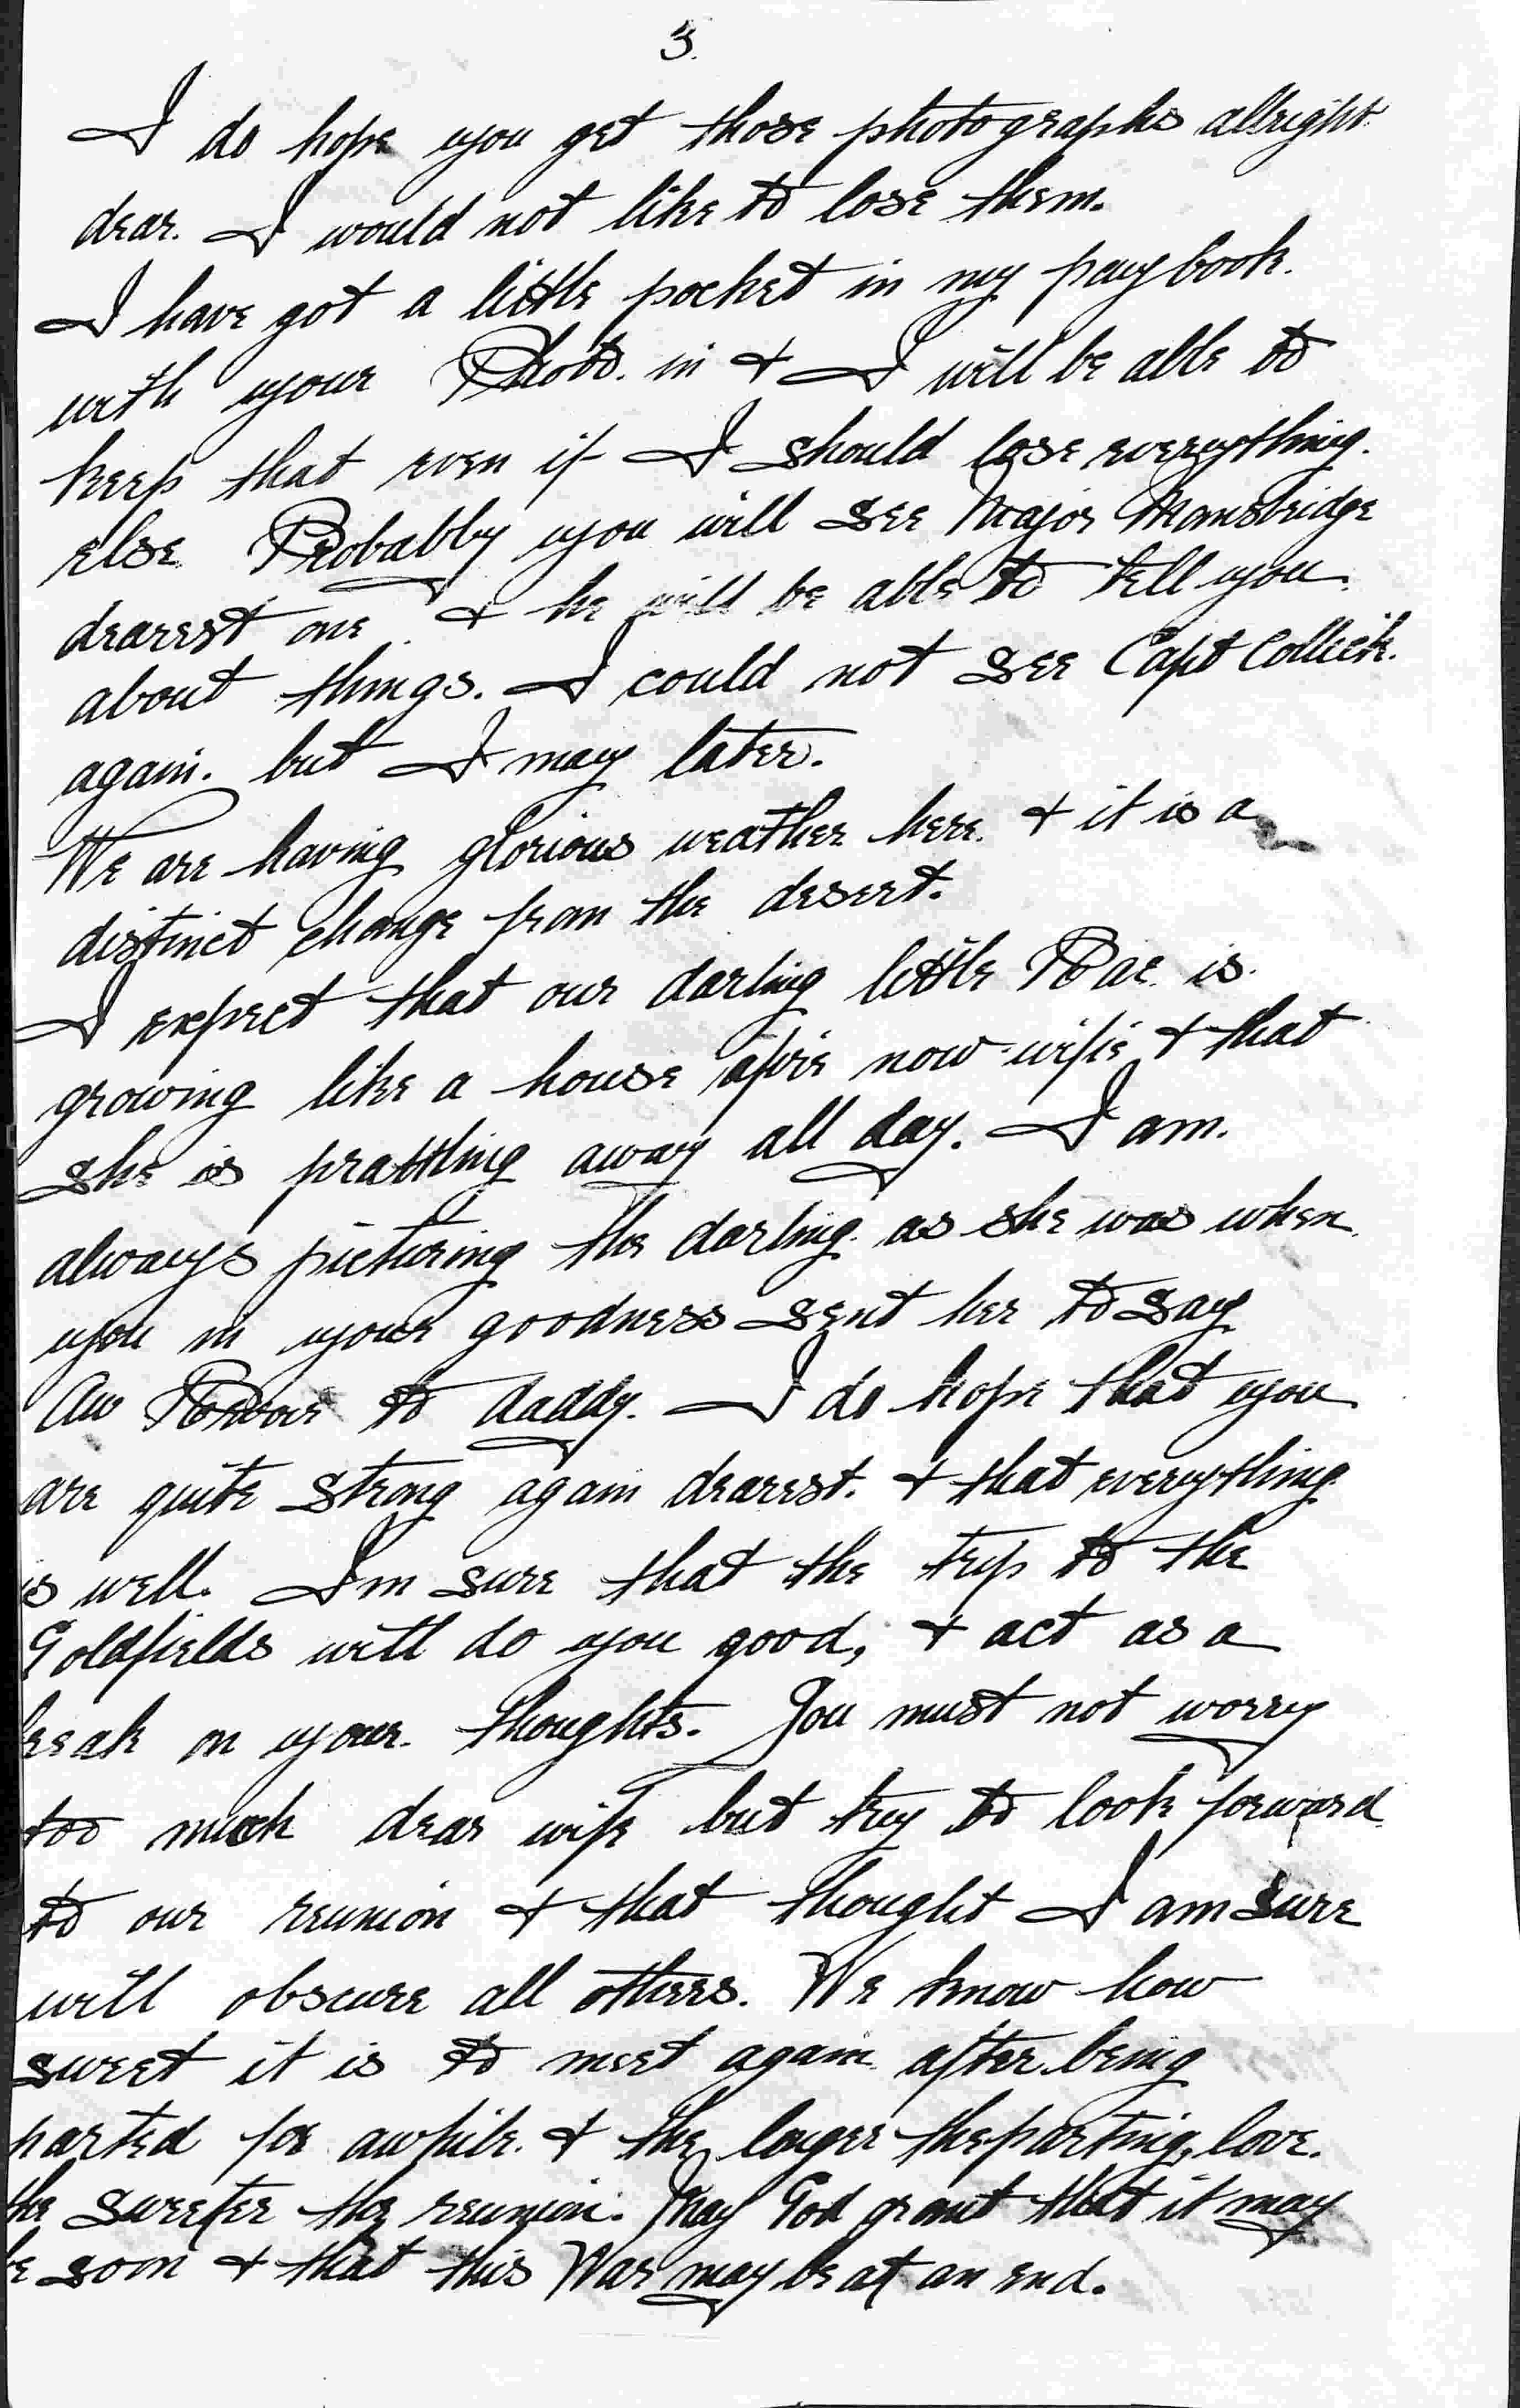 3.
I do hope you get those photographs allright.
dear. I would not like to lose them.
I have got a little pocket in my pay book.
with your Photo. in + I will be able to
keep that even if I should lose everything.
else. Probably you will see Major Mansbridge
dearest one. + he will be able to tell you.
about things. I could not see Capt Collick.
again. but I may later.
We are having glorious weather here. + it is a
distinct change from the desert.
I expect that our darling little Rae is.
growing like a house afire now wifie + that
she is prattling away all day. I am.
always picturing the darling. as she was when.
you in your goodness sent her to say
Au Revoir to daddy. I do hope that you
are quite strong again dearest. + that everything
is well. Im sure that the trip to the
Goldfields will do you good, + act as a
break on your thoughts. You must not worry
too much dear wife but try to look forward
to our reunion + that thought I am sure
will obscure all others. We know how
sweet it is to meet again after being
parted for awhile. + the longer the parting, love.
the sweeter the reunion. May God grant that it may
be soon + that this War may be at an end.